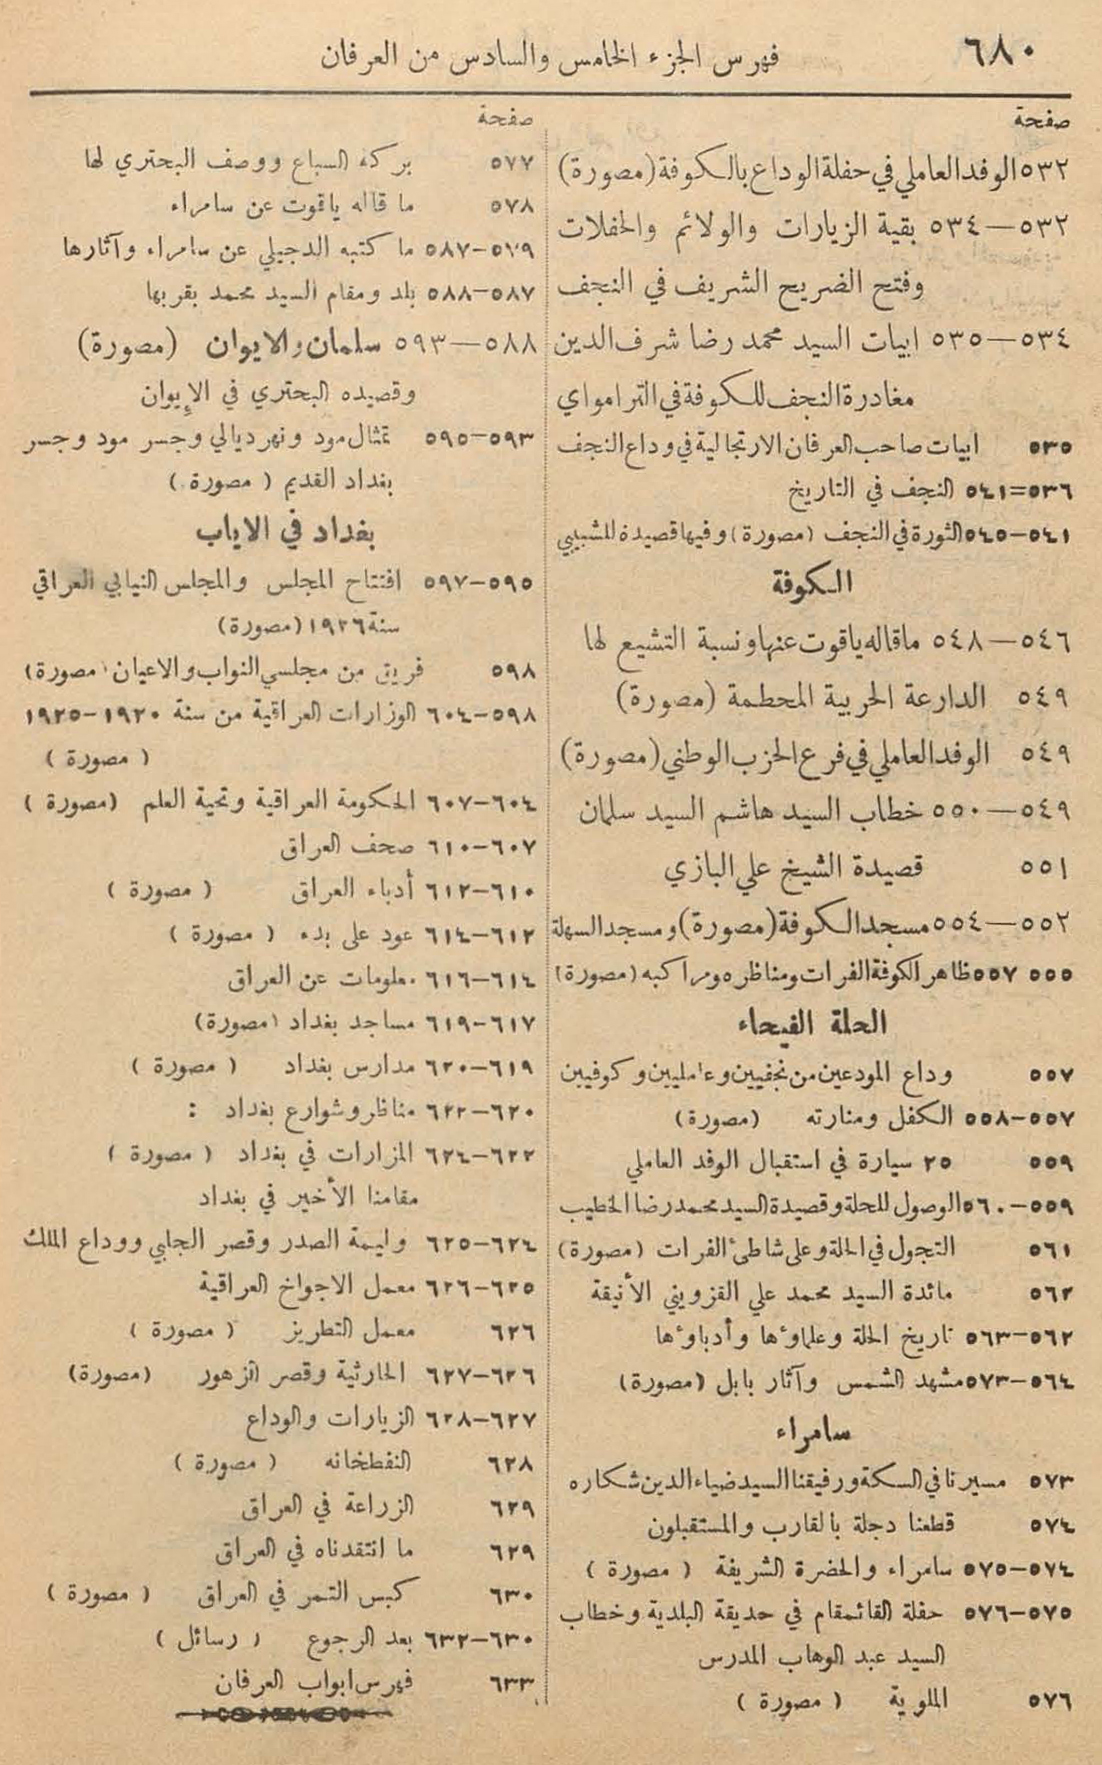 ٦٨٠
فهرس الجزء الخامس والسادس من العرفان
صفحة
٥٣٢ الوفد العاملي في حفلة الوداع بالكوفة (مصورة)
٥٣٢—٥٣٤ بقية الزيارات والولائم والحفلات
وفتح الضريح الشريف في النجف
٥٣٤—٥٣٥ ابيات السيد محمد رضا شرف الدين
مغادرة النجف للكوفة في الترامواي
٥٣٥ ابيات صاحب العرفان الارتجالية في وداع النجف
٥٣٦=٥٤١ النجف في التاريخ
٥٤١–٥٤٥ الثورة في النجف (مصورة) وفيها قصيدة للشبيبي
الكوفة
٥٤٦—٥٤٨ ما قاله ياقوت عنها ونسبة التشيع لها
٥٤٩ الدارعة الحربية المحطمة (مصورة)
٥٤٩ الوفد العاملي في فرع الحزب الوطني (مصورة)
٥٤٩—٥٥٠ خطاب السيد هاشم السيد سلمان
٥٥١ قصيدة الشيخ علي البازي
٥٥٢—٥٥٤ مسجد الكوفة (مصورة) ومسجد السهلة
٥٥٥ ٥٥٧ ظاهر الكوفة الفرات ومناظره ومراكبه (مصورة)
الحلة الفيحاء
٥٥٧ وداع المودعين من نجفيين وعامليين وكوفيين
٥٥٧–٥٥٨ الكفل ومنارته (مصورة)
٥٥٩ ٢٥ سيارة في استقبال الوفد العاملي
٥٥٩–٥٦٠ الوصول للحلة وقصيدة السيد محمد رضا الخطيب
٥٦١ التجول في الحلة وعلى شاطئ الفرات (مصورة)
٥٦٢ مائدة السيد محمد علي القزويني الأنيقة
٥٦٢–٥٦٣ تاريخ الحلة وعلماؤها وأدباؤها
٥٦٤–٥٧٣ مشهد الشمس وآثار بابل (مصورة)
سامراء
٥٧٣ مسيرنا في السكة ورفيقنا السيد ضياء الدين شكاره
٥٧٤ قطعنا دجلة بالقارب والمستقبلون
٥٧٤–٥٧٥ سامراء والحضرة الشريفة (مصورة)
٥٧٥–٥٧٦ حفلة القائمقام في حديقة البلدية وخطاب
السيد عبد الوهاب المدرس
٥٧٦ الملوية (مصورة)
صفحة
٥٧٧ بركة السباع ووصف البحتري لها
٥٧٨ ما قاله ياقوت عن سامراء
٥٧٩–٥٨٧ ما كتبه الدجيلي عن سامراء وآثارها
٥٨٧–٥٨٨ بلد ومقام السيد محمد بقربها
٥٨٨—٥٩٣ سلمان والايوان (مصورة)
وقصيده البحتري في الإيوان
٥٩٣–٥٩٥ تمثال مود ونهر ديالي وجسر مود وجسر
بغداد القديم (مصورة)
بغداد في الاياب
٥٩٥–٥٩٧ افتتاح المجلس والمجلس النيابي العراقي
سنة ١٩٢٦ (مصورة)
٥٩٨ فريق من مجلسي النواب والاعيان (مصورة)
٥٩٨–٦٠٤ الوزارات العراقية من سنة ١٩٢٠–١٩٢٥
(مصورة)
٦٠٤–٦٠٧ الحكومة العراقية وتحية العلم (مصورة)
٦٠٧–٦١٠ صحف العراق
٦١٠–٦١٢ أدباء العراق (مصورة)
٦١٢–٦١٤ عود على بدء (مصورة)
٦١٤–٦١٦ معلومات عن العراق
٦١٧–٦١٩ مساجد بغداد (مصورة)
٦١٩–٦٢٠ مدارس بغداد (مصورة)
٦٢٠–٦٢٢ مناظر وشوارع بغداد :
٦٢٢–٦٢٤ المزارات في بغداد (مصورة)
مقامنا الأخير في بغداد
٦٢٤–٦٢٥ وليمة الصدر وقصر الچلبي ووداع الملك
٦٢٥–٦٢٦ معمل الاجواخ العراقية
٦٢٦ معمل التطريز (مصورة)
٦٢٦–٦٢٧ الحارثية وقصر الزهور (مصورة)
٦٢٧–٦٢٨ الزيارات والوداع
٦٢٨ النفطخانه (مصورة)
٦٢٩ الزراعة في العراق
٦٢٩ ما انتقدناه في العراق
٦٣٠ كبس التمر في العراق (مصورة)
٦٣٠–٦٣٢ بعد الرجوع (رسائل)
٦٣٣ فهرس ابواب العرفان